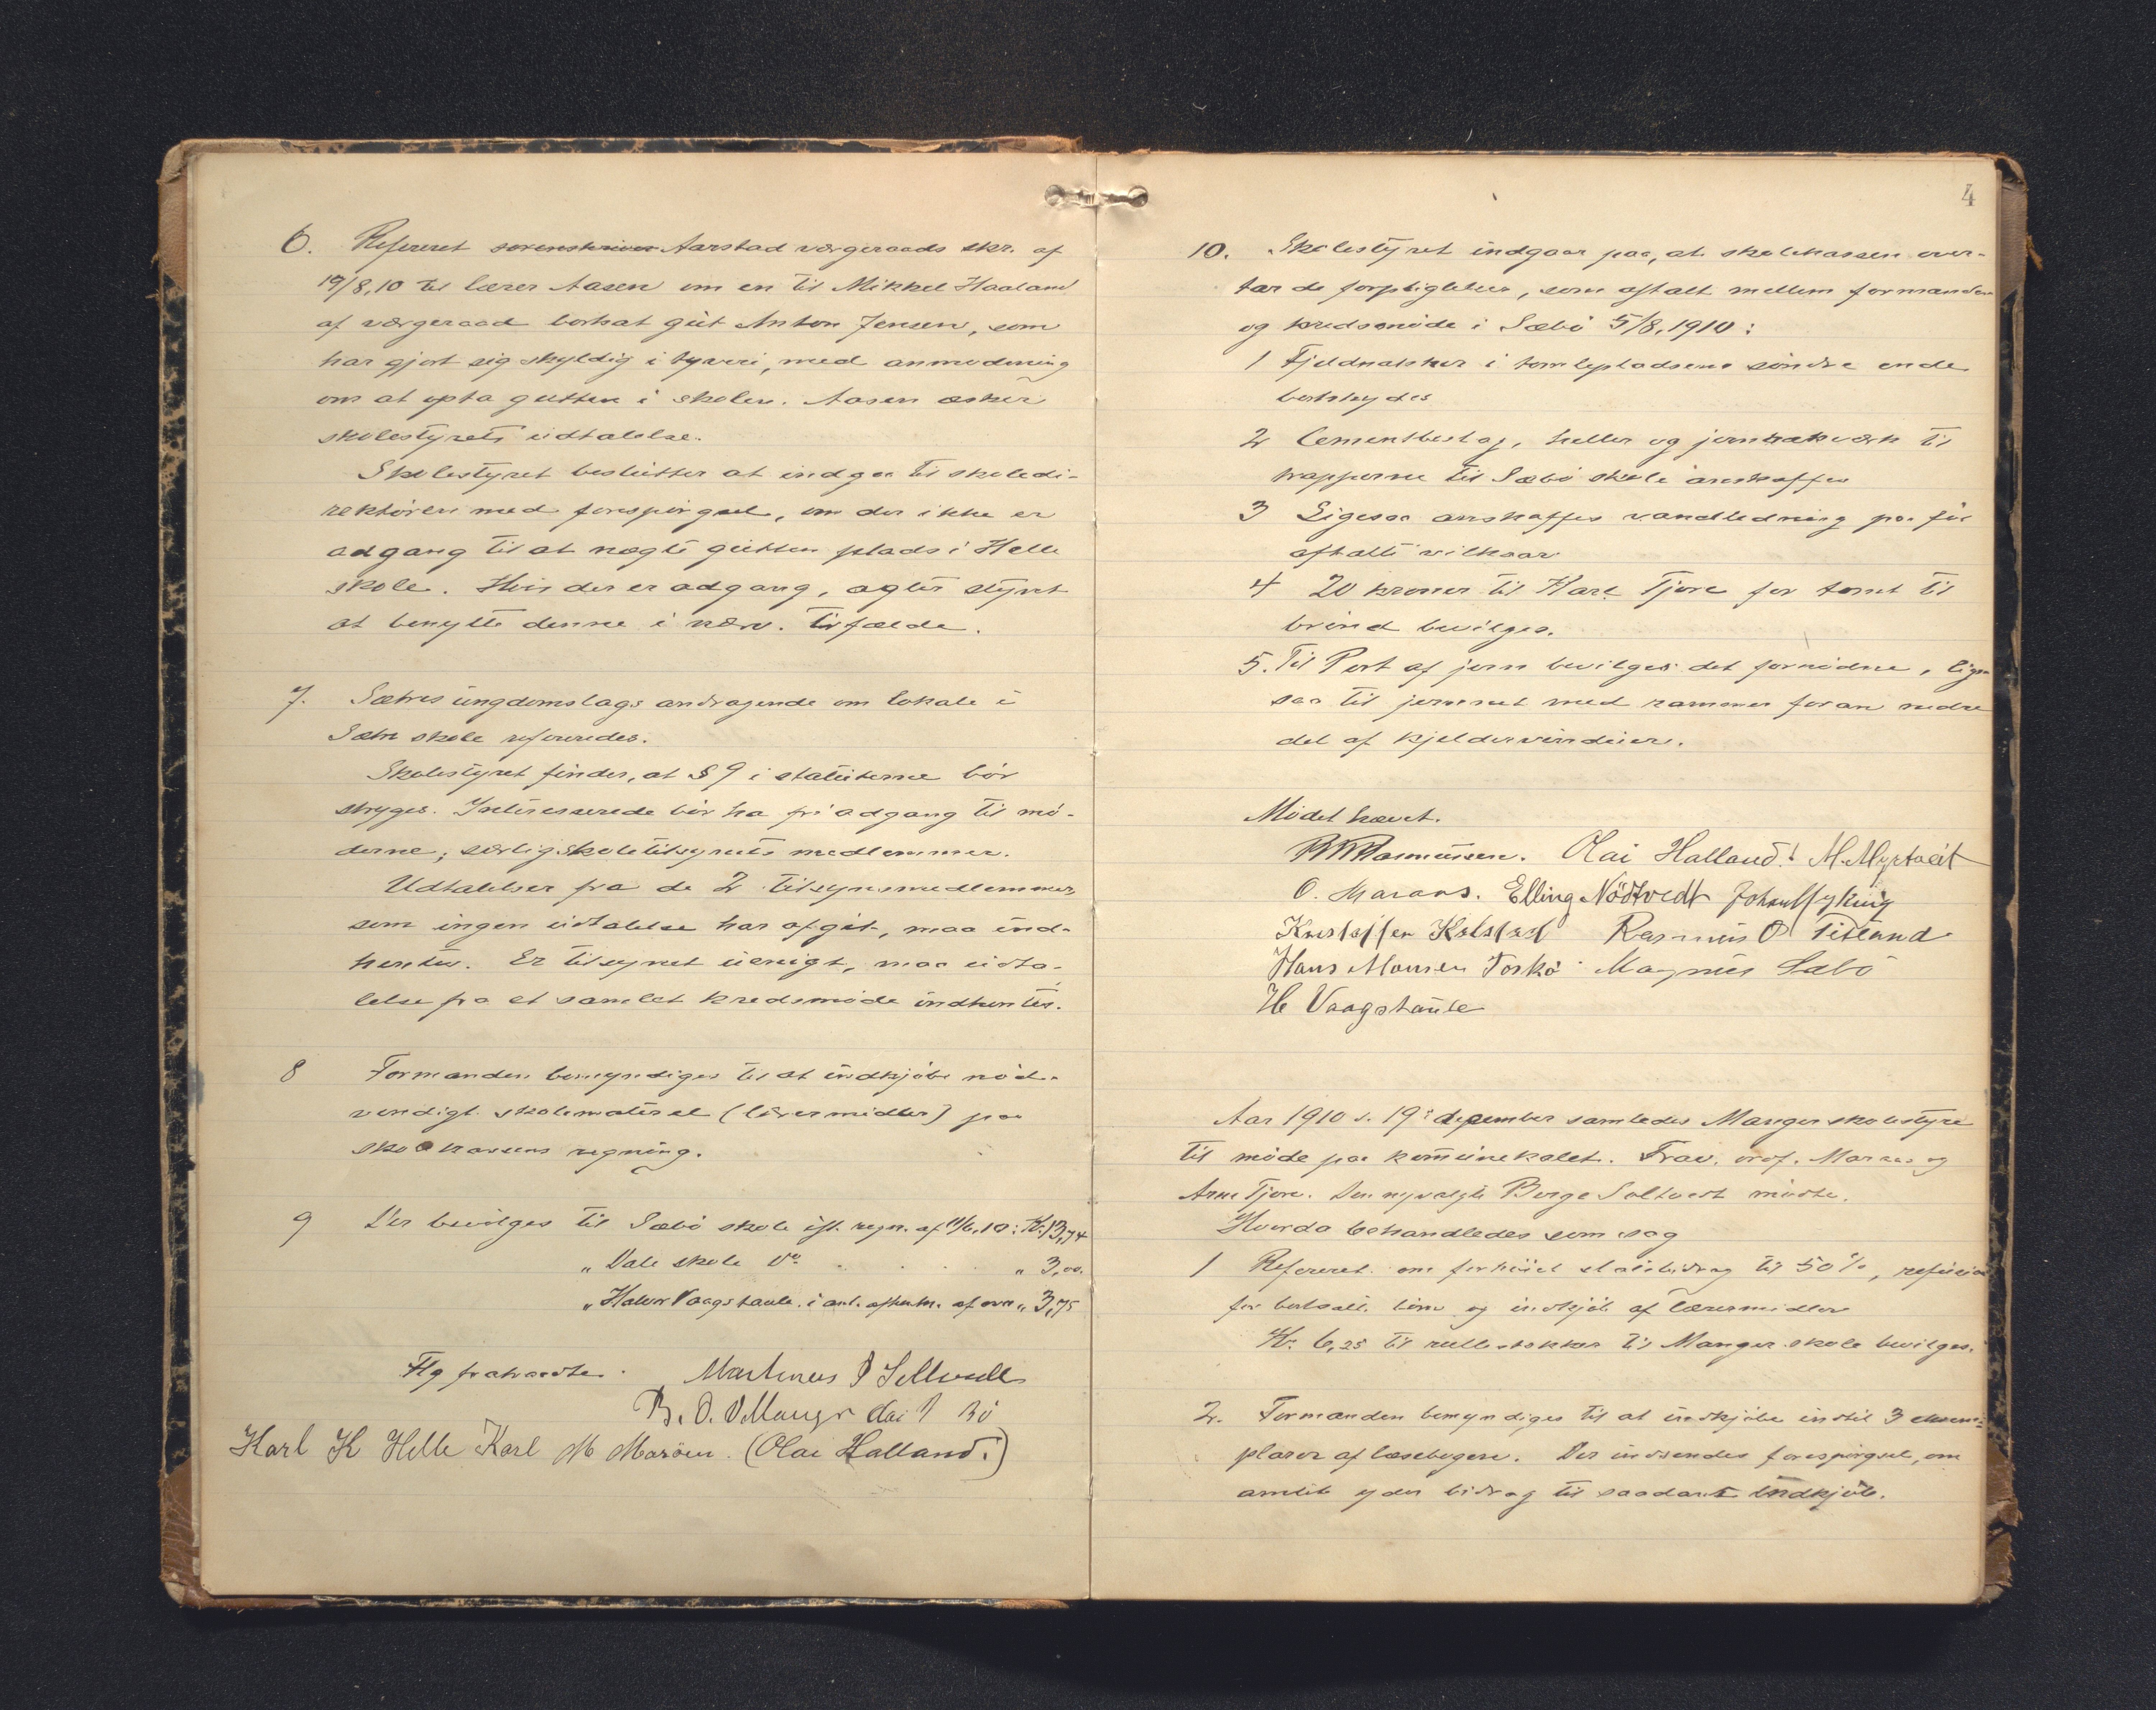 6. Refereret sorenskriver Aarstad værgeraads skr. af
19/8,10 til lærer Aasen om en til Mikkel Haaland
af værgeraad bortsat gut Anton Jensen, som
har gjort sig skyldig i tyveri, med anmodning
om at opta gutten i skolen. Aasen æsker
skolestyrets udtalelse.
Skolestyret beslutter at indgaa til skoledi-
rektören med forespörgsel, om der ikke er
adgang til at nægte gutten plads i Helle
skole. Hvis der er adgang, agter styret
at benytte denne i nærv. tilfælde.
7. Sætres ungdomslags andragende om lokale i
Sætre skole refereredes.
Skolestyret finder, at § 9 i statuterne bör
stryges. Interesserede bör ha fri adgang til mö-
derne, særlig skoletilsynets medlemmer.
Udtalelser fra de 2 tilsynsmedlemmer
som ingen udtalelse har afgit, maa ind-
hentes. Er tilsynet uenigt, maa udta-
lelse fra et samlet kredsmöde indhentes.
8 Formanden bemyndiges til at indkjöbe nöd-
vendigt skolemateriel (læremidler) paa
skolekassens regning.
9 Der bevilges til Sæbö skole ifl. regn. af 11/6,10: Kr. 13,74
" Dale skole do . . . . " 3,00.
" Halvor Vaagstaule i anl. afhentn. af ovn " 3,75
Flg fratraadte. Martinus
B. O. Manger Olai Bö
Karl K Helle Karl M Maröen. (Olai Halland.)
4
10. Skolestyret indgaar paa, at skolekassen over-
tar de forpligtelser, som aftalt mellem formanden
og kredsmöde i Sæbö 5/8, 1910:
1 Fjeldnakker i tomlepladsens söndre ende
bortskydes
2 Cementbeslag, heller og jernrækværk til
trapperne til Sæbö skole anskaffes
3 Ligesaa anskaffes vandledning paa för
aftalte vilkaar
4 20 kroner til Karl Tjore for tomt til
brönd bevilges.
5. Til Port af jern bevilges det fornödne, lige-
saa til jernnet med rammer foran nedre
del af kjeldervinduer.
Mödet hævet.
Rasmussen. Olai Halland. M. Myrtveit
O. Maraas. Elling Nödtvedt Johan
Kristoffer Kolstad Rasmus O Titland
Hans Monsen Toskö Magnus Sæbö
H Vaagstaule
Aar 1910 d. 19de december samledes Manger skolestyre
til möde paa komunelokalet. Frav. ordf. Maraas og
Arne Tjore. Den nyvalgte Berge Soltvedt mödte.
Hvorda behandledes som sag
1 Refereret om forhöiet statsbidrag til 50 %, refusion
for bortsatte börn og indkjöb af læremidler
Kr. 6,25 til rullestokker til Manger skole bevilges.
2. Formanden bemyndiges til at indkjöbe indtil 3 eksem-
plarer af læsebogen. Der indsendes forespörgsel, om
amtet yder bidrag til saadant indkjöb.